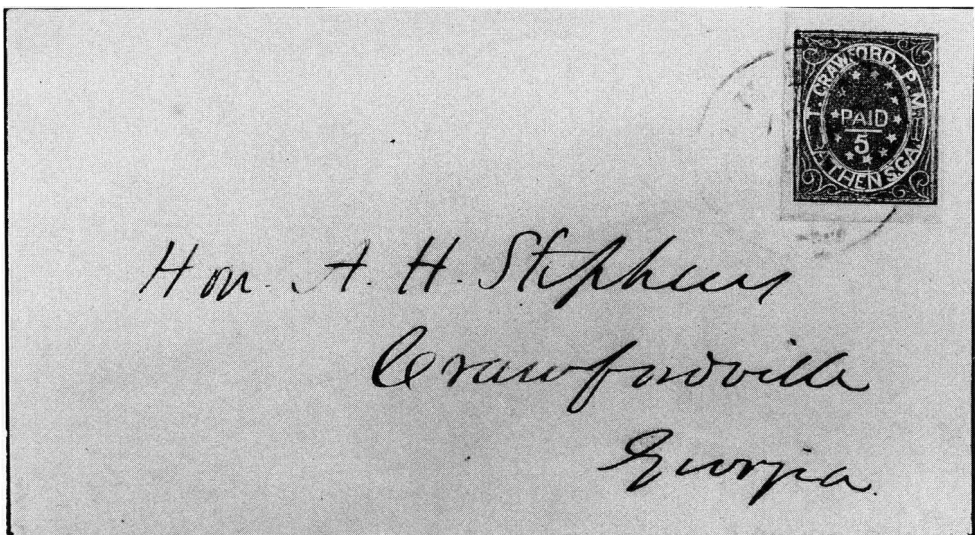 T. CRAWFORD, P.M.
PAID
5
ATHENS. GA.
Hon. A. H. Stephens
Crawfordville
Georgia.